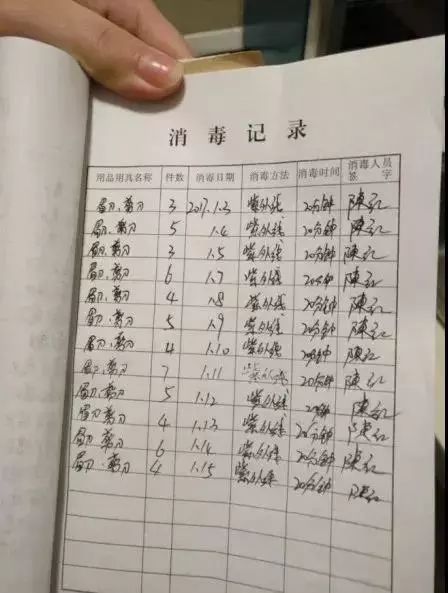 消毒记录
用品用具名称 件数 消毒日期 消毒方法 消毒时间 消毒人员签字
眉刀.剪刀 3 2017.1.3 紫外线 20分钟 陈红
眉刀.剪刀 5 1.4 紫外线 20分钟 陈红
眉刀.剪刀 3 1.5 紫外线 20分钟 陈红
眉刀.剪刀 6 1.7 紫外线 20分钟 陈红
眉刀.剪刀 4 1.8 紫外线 20分钟 陈红
眉刀.剪刀 5 1.9 紫外线 20分钟 陈红
眉刀.剪刀 4 1.10 紫外线 20分钟 陈红
眉刀.剪刀 7 1.11 紫外线 20分钟 陈红
眉刀.剪刀 5 1.12 紫外线 20分钟 陈红
眉刀.剪刀 4 1.13 紫外线 20分钟 陈红
眉刀.剪刀 6 1.14 紫外线 20分钟 陈红
眉刀.剪刀 4 1.15 紫外线 20分钟 陈红